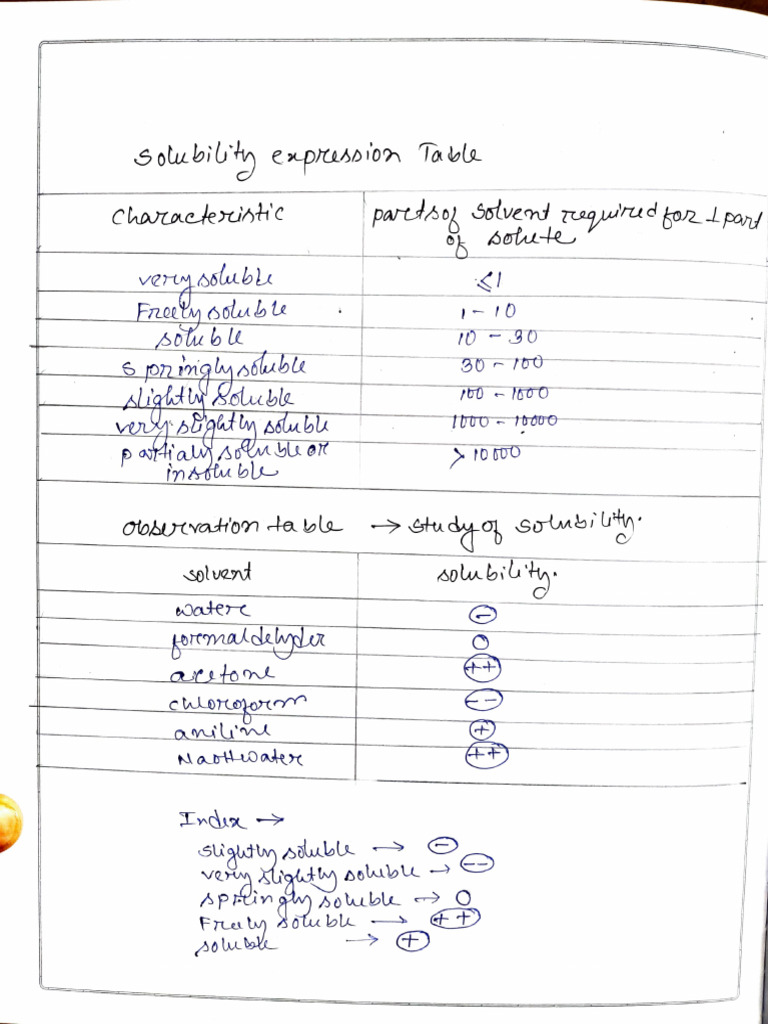 Solubility expression Table
Characteristic
parts of solvent required for 1 part of solute
very soluble
≤1
Freely soluble
1 - 10
soluble
10 - 30
springly soluble
30 - 100
slightly soluble
100 - 1000
very slightly soluble
1000 - 10000
partialy soluble or insoluble
> 10000
observation table → study of solubility.
solvent
solubility.
water
-
formaldehyder
O
acetone
++
chloroform
--
aniline
+
NaOH water
++
Index →
slightly soluble → -
very slightly soluble → --
springly soluble → O
Freely soluble → ++
soluble → +